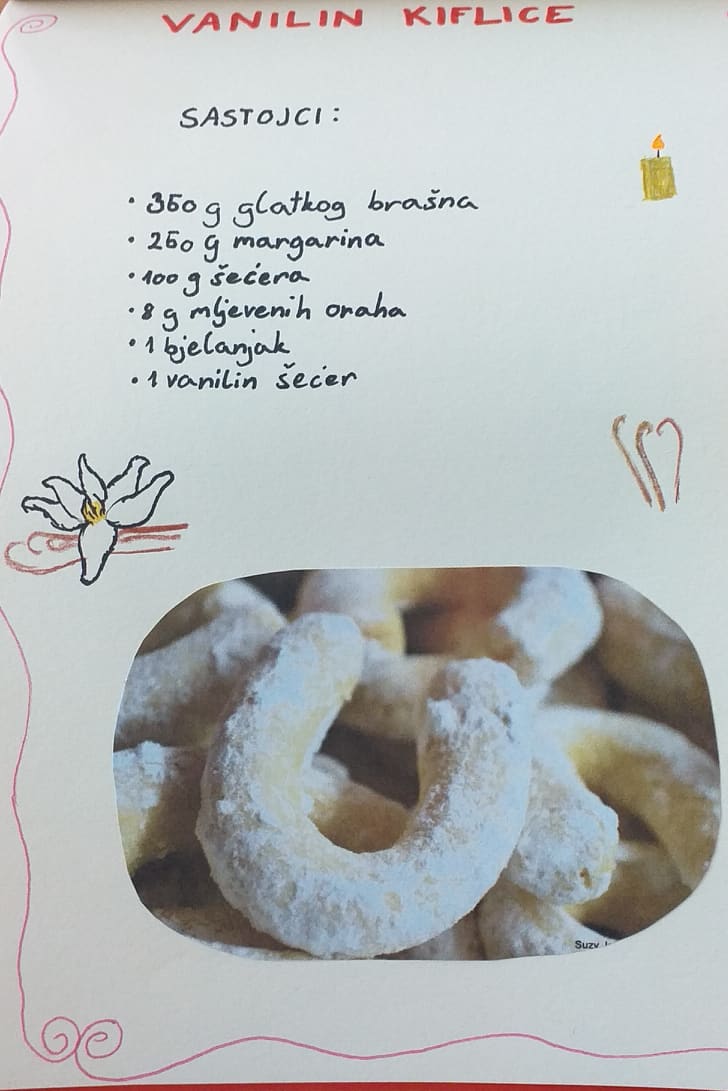 VANILIN KIFLICE
SASTOJCI:
• 350 g glatkog brašna
• 250 g margarina
• 100 g šećera
• 8 g mljevenih oraha
• 1 bjelanjak
• 1 vanilin šećer
Suzy